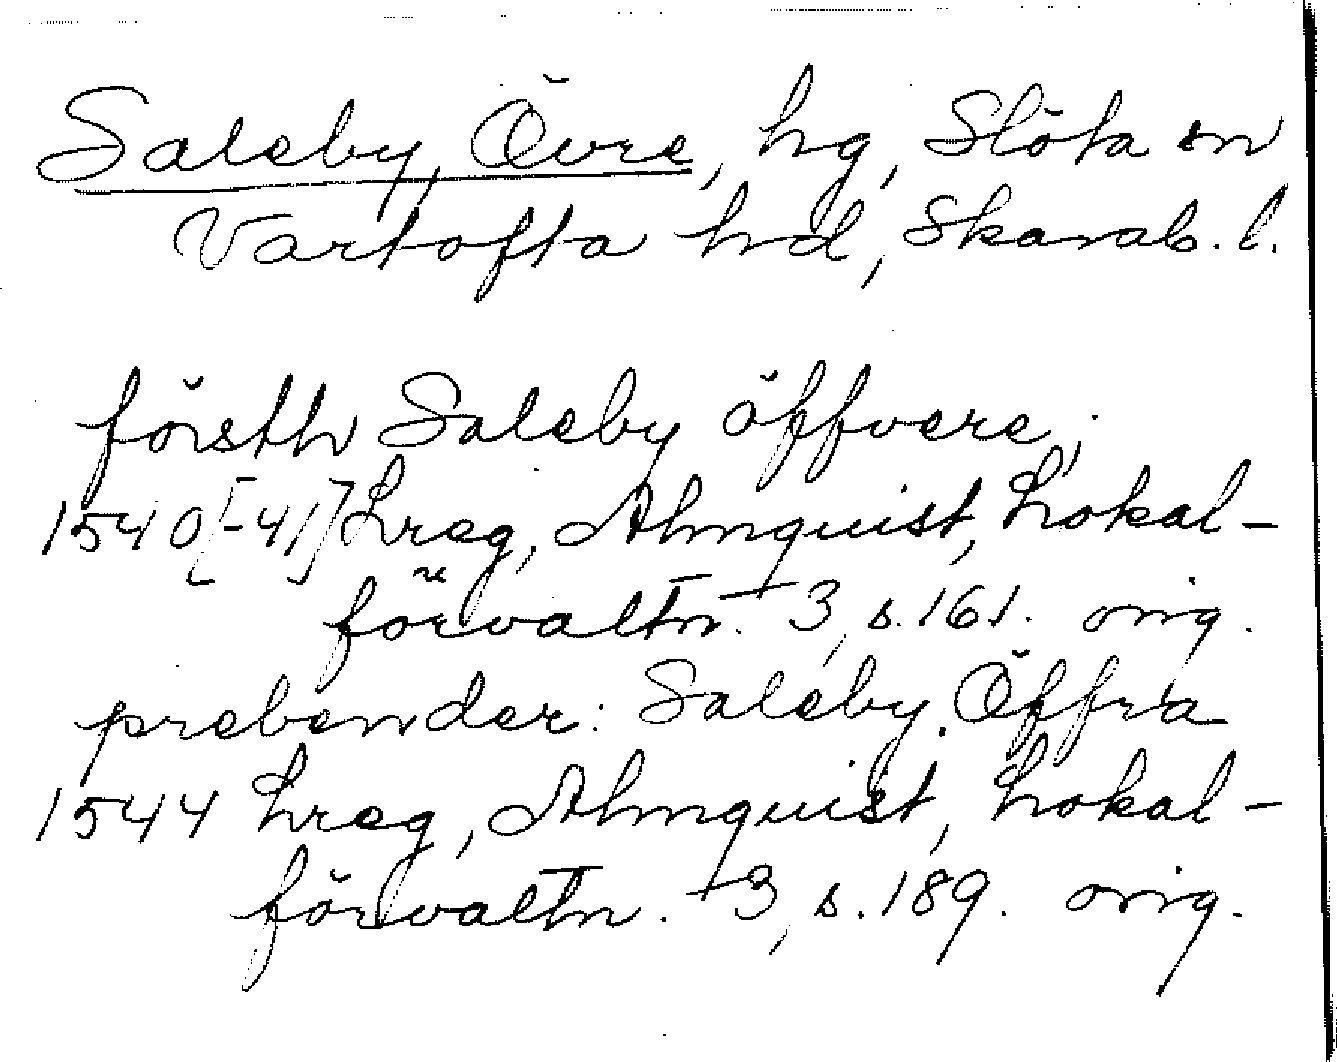 Saleby, Övre, hg, Slöta sn
Vartofta hd, Skarab. l.
försth Saleby öffvere;
1540[-41] Lreg, Almquist, Lokal-
förvaltn. +3, s. 161. orig.
prebender: Saleby. Öffra
1544 Lreg, Almquist, Lokal-
förvaltn. +3, s. 189. orig.